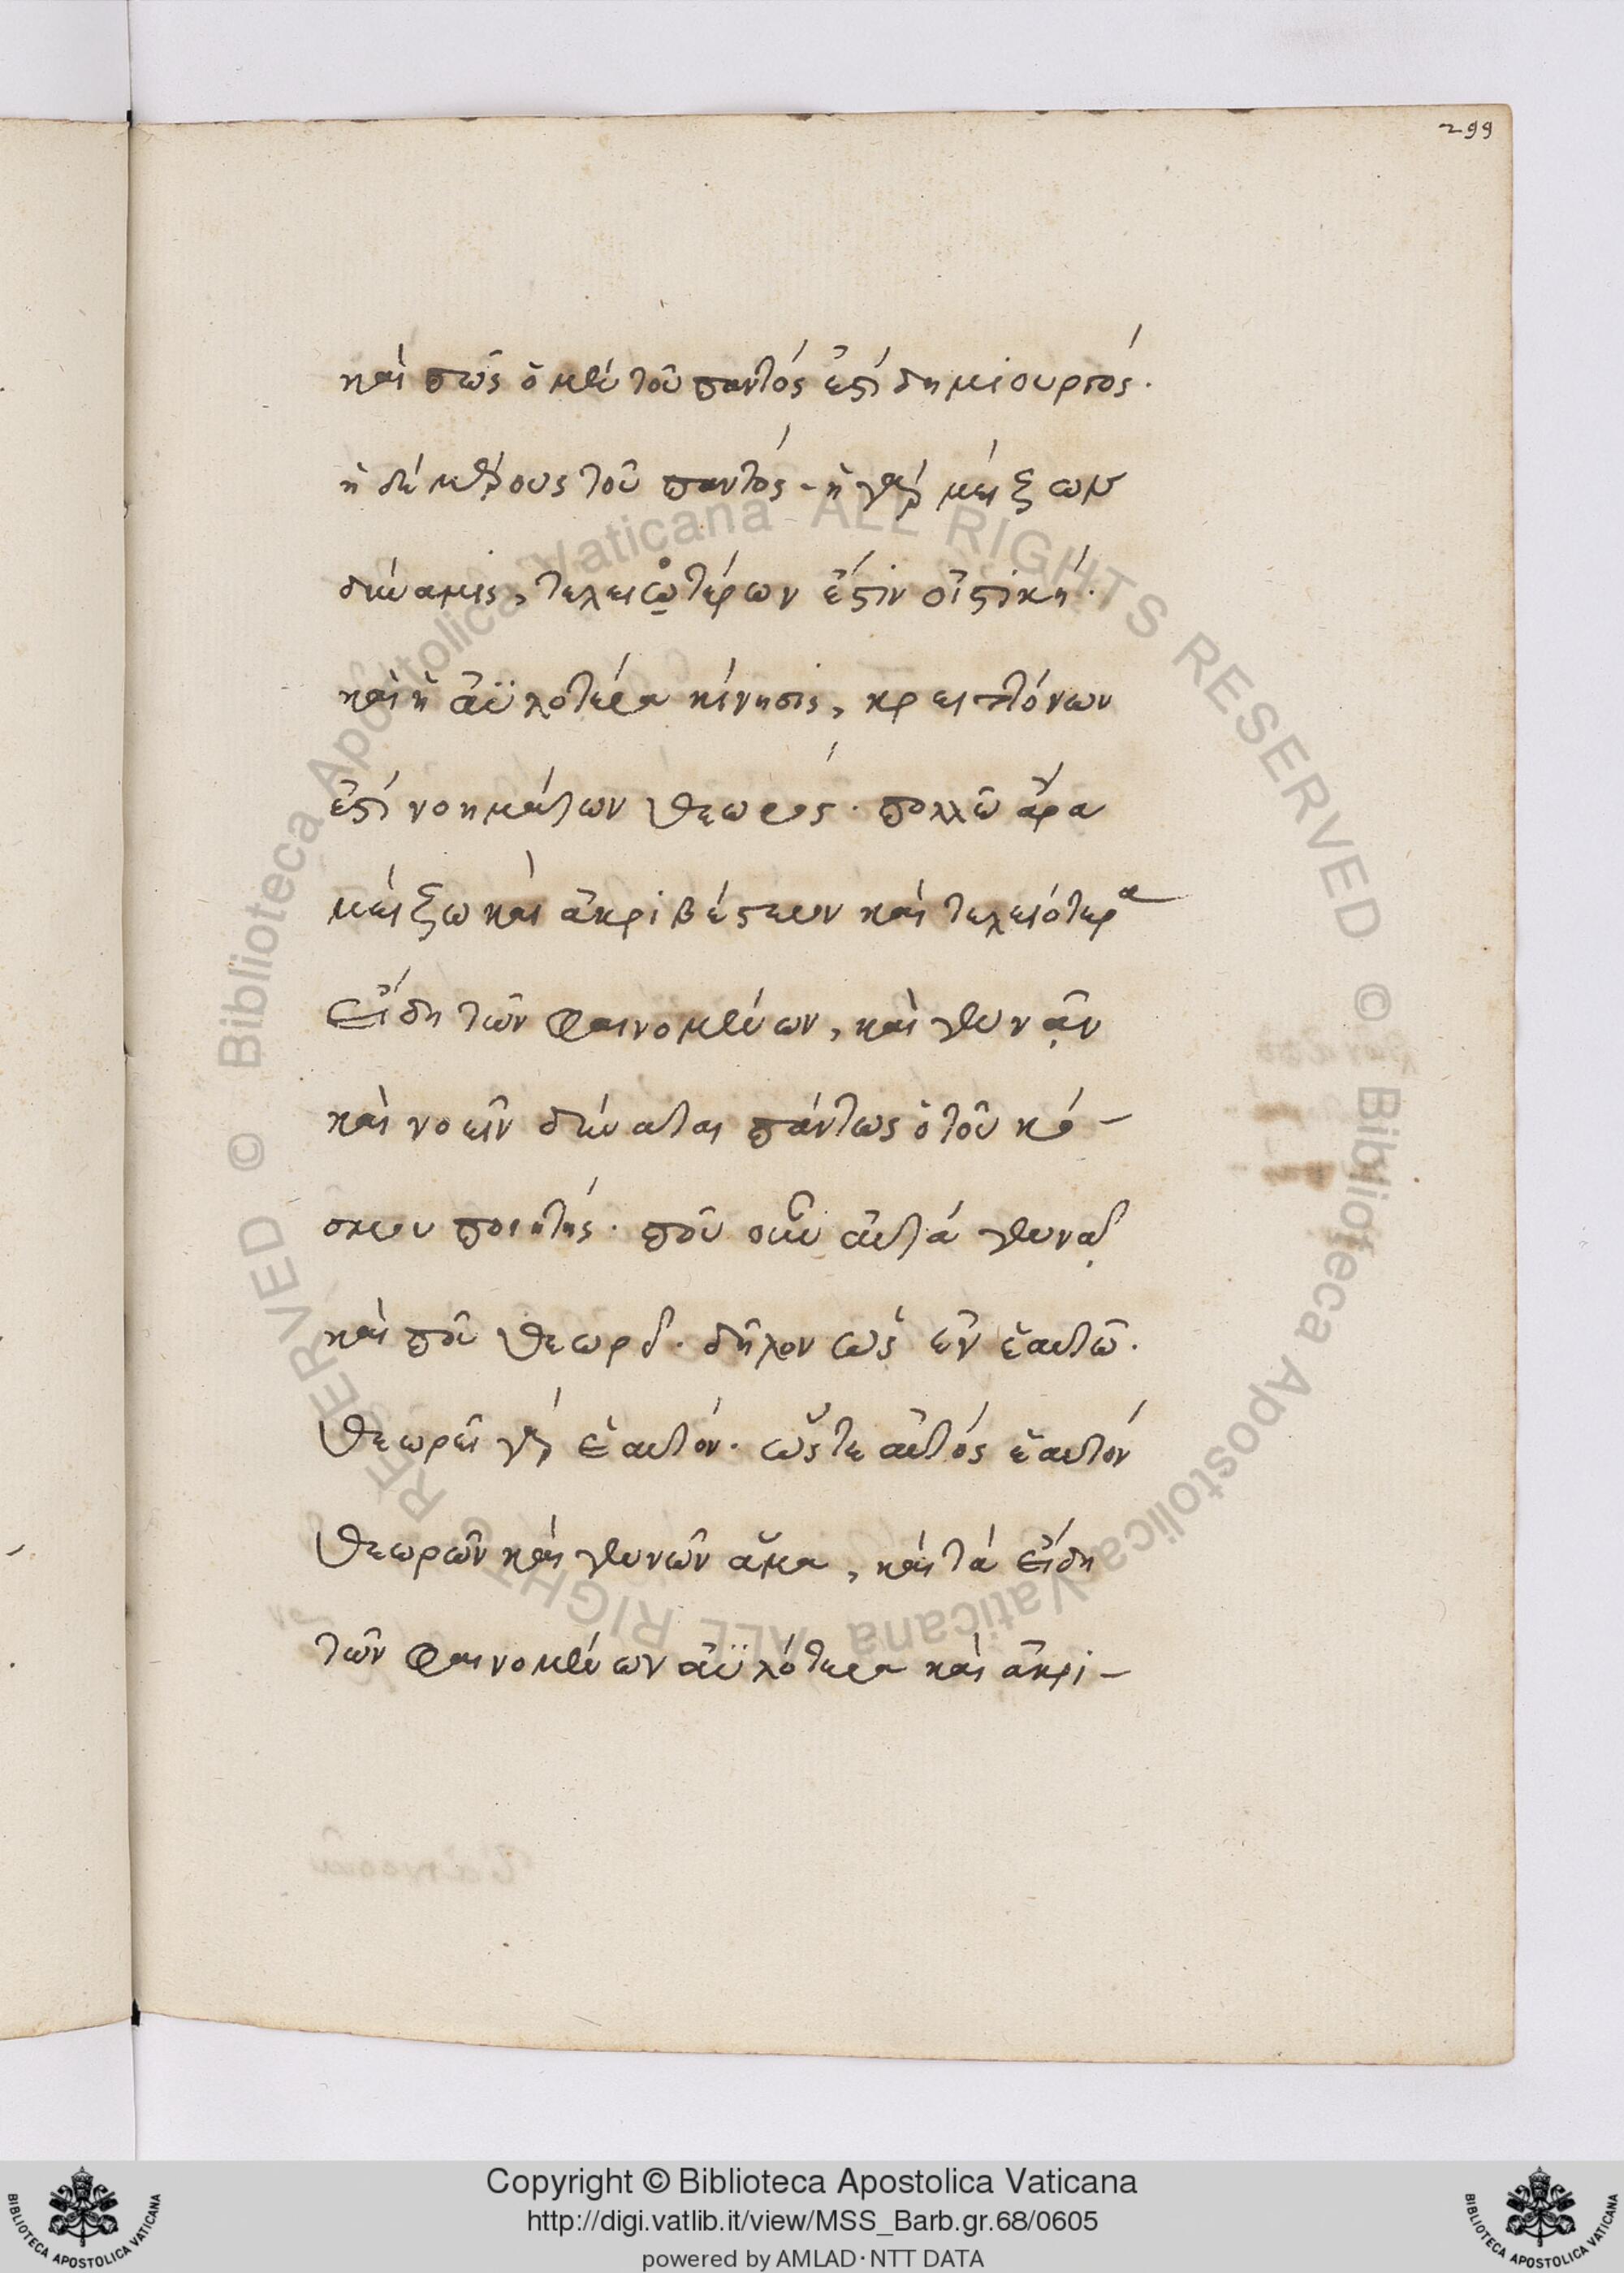 299
καὶ πῶς ὁ μὲν τοῦ παντός ἐστὶ δημιουργός·
ἡ δὲ μέρους τοῦ παντός· ἡ γὰρ μείζων
δύναμις, τελειωτέρων ἐστὶν οἰστική·
καὶ ἡ ἀϋλοτέρα κίνησις, κρειττόνων
ἐστὶ νοημάτων θεωρός· πολλῶ ἄρα
μείζω καὶ ἀκριβέστερον καὶ τελειότερα
εἴδη τῶν φαινομένων, καὶ γεννᾶν
καὶ νοεῖν δύναται πάντως ὁ τοῦ κό-
σμου ποιητής· ποῦ οὖν αὐτά γεννᾷ
καὶ ποῦ θεωρεῖ· δῆλον ὡς ἐν ἑαυτῶ·
θεωρεῖ γὰρ ἑαυτόν· ὥστε αὐτός ἑαυτόν
θεωρῶν καὶ γεννῶν ἅμα, καὶ τὰ εἴδη
τῶν φαινομένων ἀϋλότερα καὶ ἀκρι-
© Biblioteca Apostolica Vaticana ALL RIGHTS RESERVED © Biblioteca Apostolica Vaticana ALL RIGHTS RESERVED
Copyright © Biblioteca Apostolica Vaticana
http://digi.vatlib.it/view/MSS_Barb.gr.68/0605
powered by AMLAD·NTT DATA
BIBLIOTECA APOSTOLICA VATICANA
BIBLIOTECA APOSTOLICA VATICANA